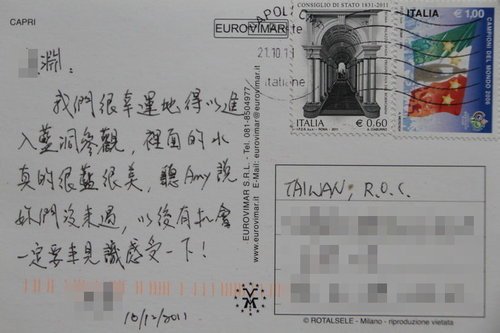 CAPRI
EUROVIMAR
淵.
我們很幸運地得以進
入藍洞參觀,裡面的水
真的很藍很美,聽Amy說
妳們沒來過,以後有機會
一定要來見識感受一下!
10/12/2011
EUROVIMAR S.R.L. - Tel. 081-8504977
E-Mail: eurovimar@eurovimar.it
NAPOLI
21.10.1
Italiane
CONSIGLIO DI STATO 1831-2011
ITALIA
€ 0.60
ITALIA
€ 1,00
CAMPIONI DEL MONDO 2006
TAIWAN, R.O.C.
© ROTALSELE - Milano - riproduzione vietata